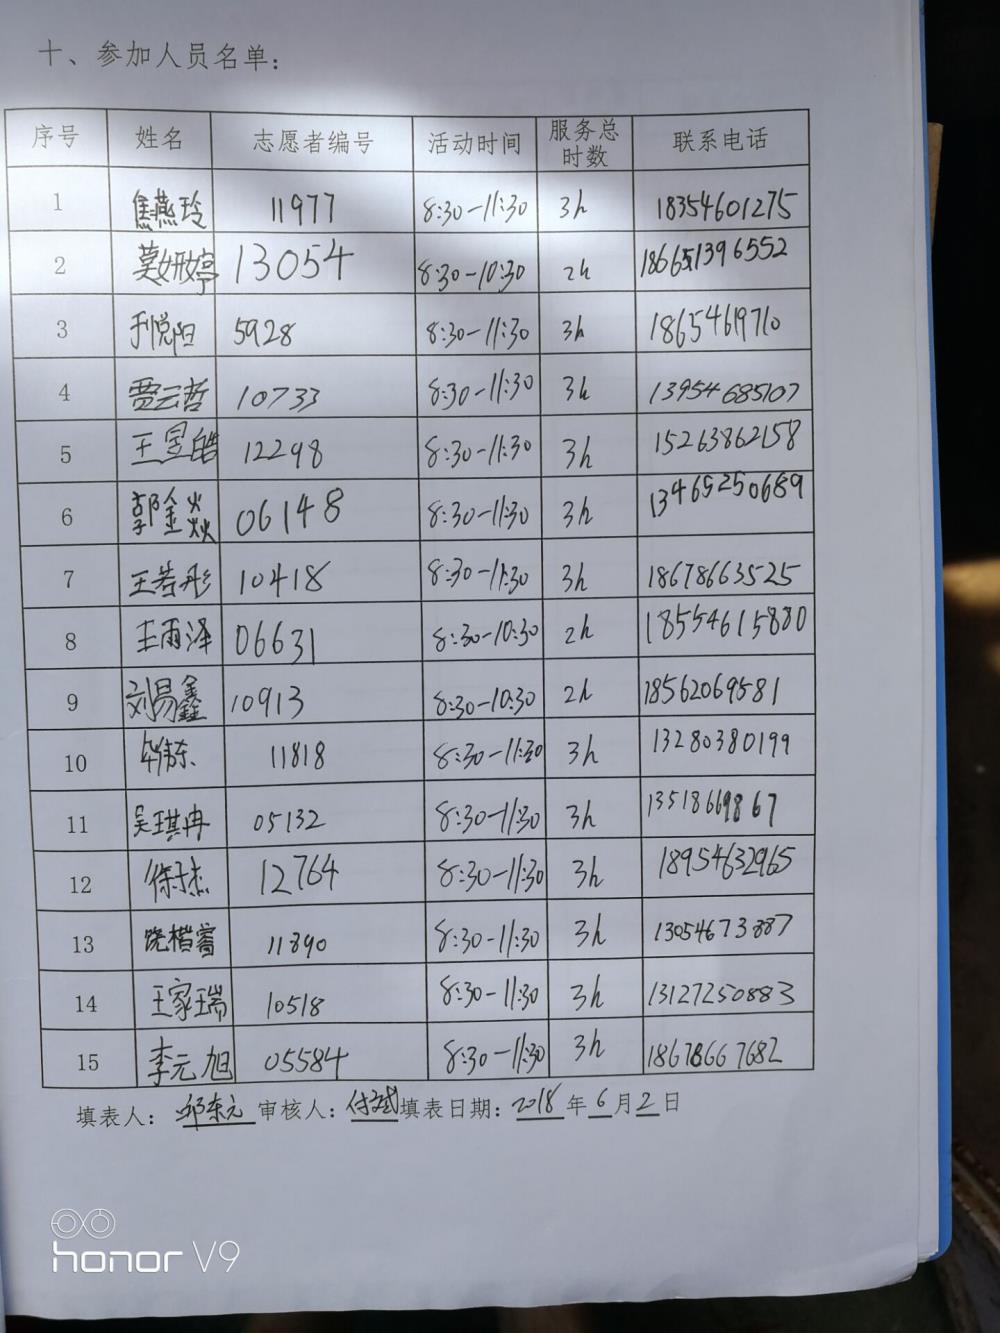 十、参加人员名单：
序号 姓名 志愿者编号 活动时间 服务总时数 联系电话
1 焦燕玲 11977 8:30-11:30 3h 18354601275
2 莫妍婷 13054 8:30-10:30 2h 186651396552
3 5928 8:30-11:30 3h 18654619710
4 贾云哲 10733 8:30-11:30 3h 13954685107
5 王昱皓 12298 8:30-11:30 3h 15263862158
6 郭金焱 06148 8:30-11:30 3h 13465250689
7 王若彤 10418 8:30-11:30 3h 18678663525
8 王雨泽 06631 8:30-10:30 2h 18554615880
9 刘易鑫 10913 8:30-10:30 2h 18562069581
10 11818 8:30-11:30 3h 13280380199
11 吴琪冉 05132 8:30-11:30 3h 13518669867
12 徐子杰 12764 8:30-11:30 3h 18954632965
13 饶楷睿 11890 8:30-11:30 3h 13054673887
14 王家瑞 10518 8:30-11:30 3h 13127250883
15 李元旭 05584 8:30-11:30 3h 18678667682
填表人：邱东元 审核人：付斌 填表日期：2018年6月2日
honor V9